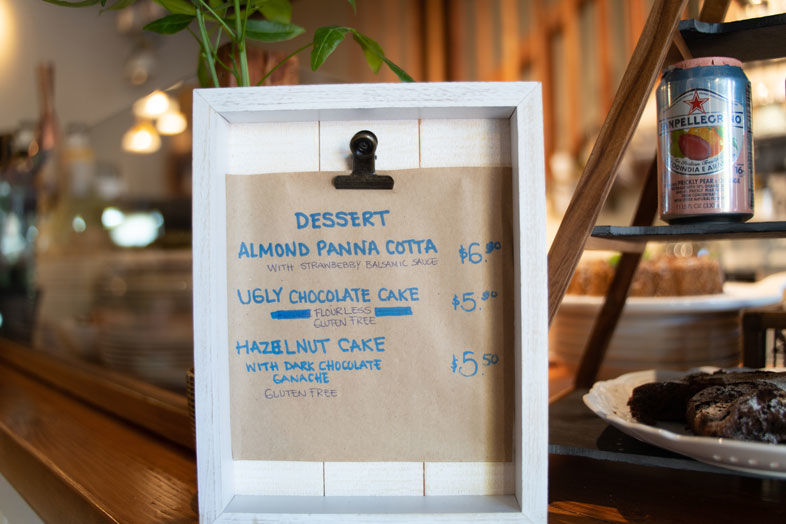 DESSERT
ALMOND PANNA COTTA $6.90
WITH STRAWBERRY BALSAMIC SAUCE
UGLY CHOCOLATE CAKE $5.90
FLOURLESS
GLUTEN FREE
HAZELNUT CAKE
WITH DARK CHOCOLATE $5.50
GANACHE
GLUTEN FREE
SANPELLEGRINO
PRICKLY PEAR &